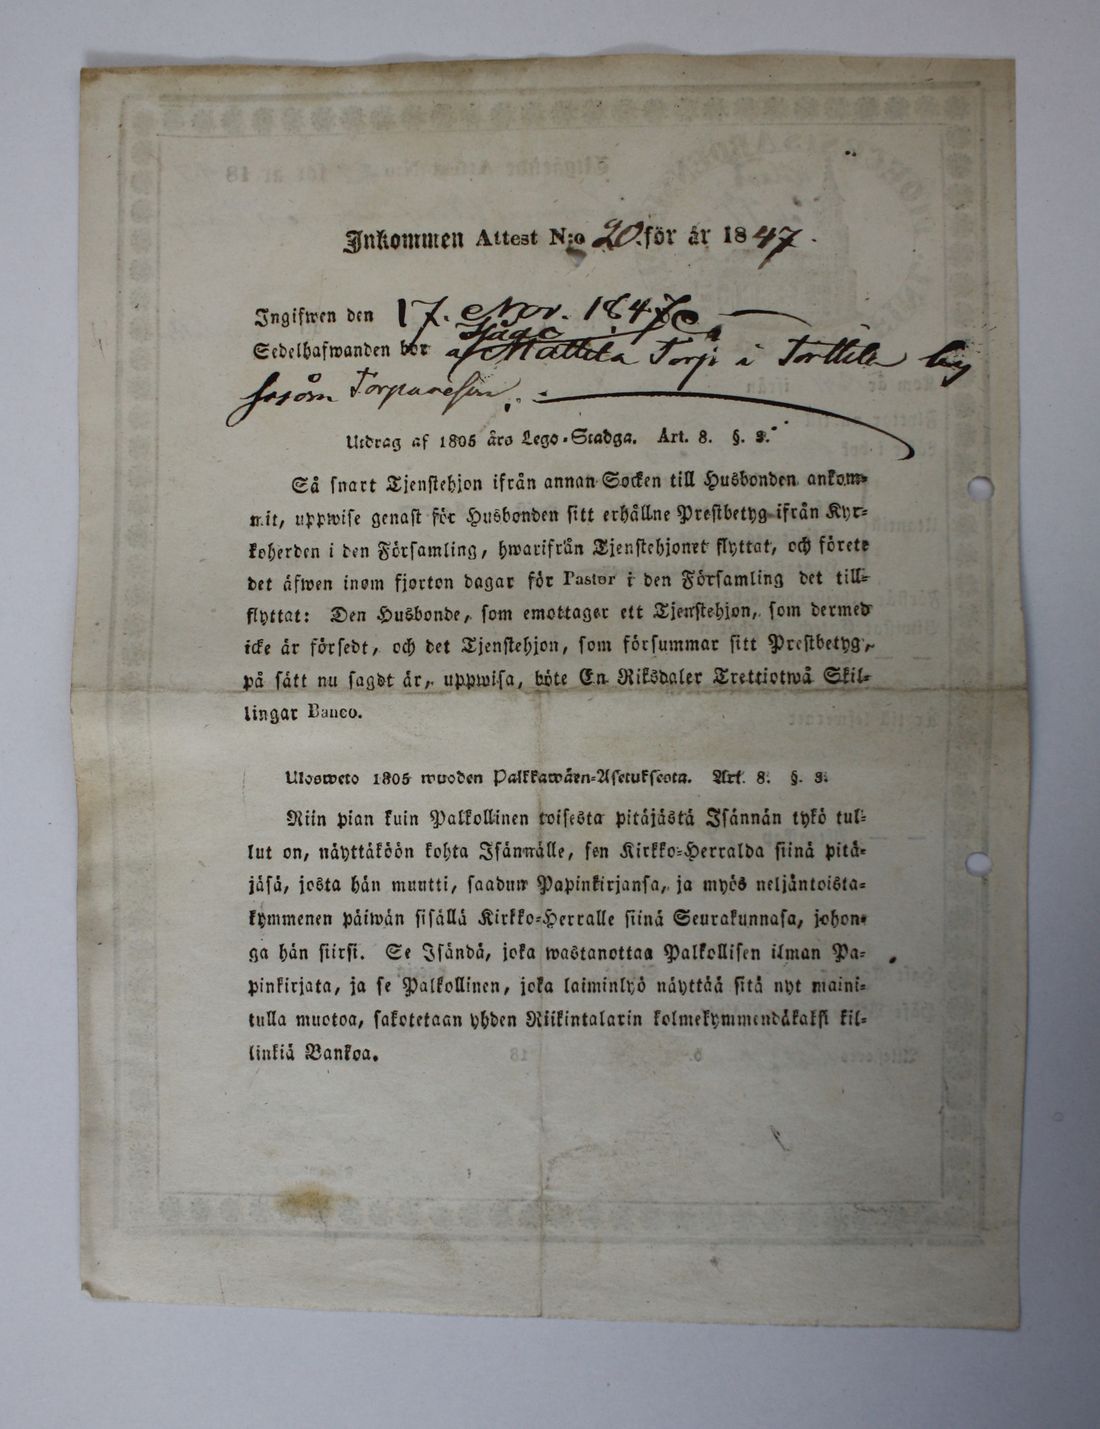 Inkommen Attest N:o 20. för år 1847.
Ingifwen den 17. Nov. 1847
Sedelhafwanden bor å Mattila Torp i Torttila by
såsom Torpareson.
Utdrag af 1805 års Lego-Stadga. Art. 8. §. 3.
Så snart Tjenstehjon ifrån annan Socken till Husbonden ankom-
mit, uppwise genast för Husbonden sitt erhållne Prestbetyg ifrån Kyr-
koherden i den Församling, hwarifrån Tjenstehjonet flyttat, och förete
det äfwen inom fjorton dagar för Pastor i den Församling det till-
flyttat: Den Husbonde, som emottager ett Tjenstehjon, som dermed
icke är försedt, och det Tjenstehjon, som försummar sitt Prestbetyg,
på sätt nu sagdt är, uppwisa, böte En Riksdaler Trettiotwå Skil-
lingar Banco.
Ulosweto 1805 wuoden Palkkawäen-Asetuksesta. Art. 8. §. 3.
Niin pian kuin Palkollinen toisesta pitäjästä Isännän tykö tul-
lut on, näyttäköön kohta Isännälle, sen Kirkko-Herralda siinä pitä-
jäsä, josta hän muutti, saadun Papinkirjansa, ja myös neljäntoista-
kymmenen päiwän sisällä Kirkko-Herralle siinä Seurakunnasa, johon-
ga hän siirsi. Se Isändä, joka wastanottaa Palkollisen ilman Pa-
pinkirjata, ja se Palkollinen, joka laiminlyö näyttää sitä nyt maini-
tulla muotoa, sakotetaan yhden Riikintalarin kolmekymmendäkaksi kil-
linkiä Bankoa.